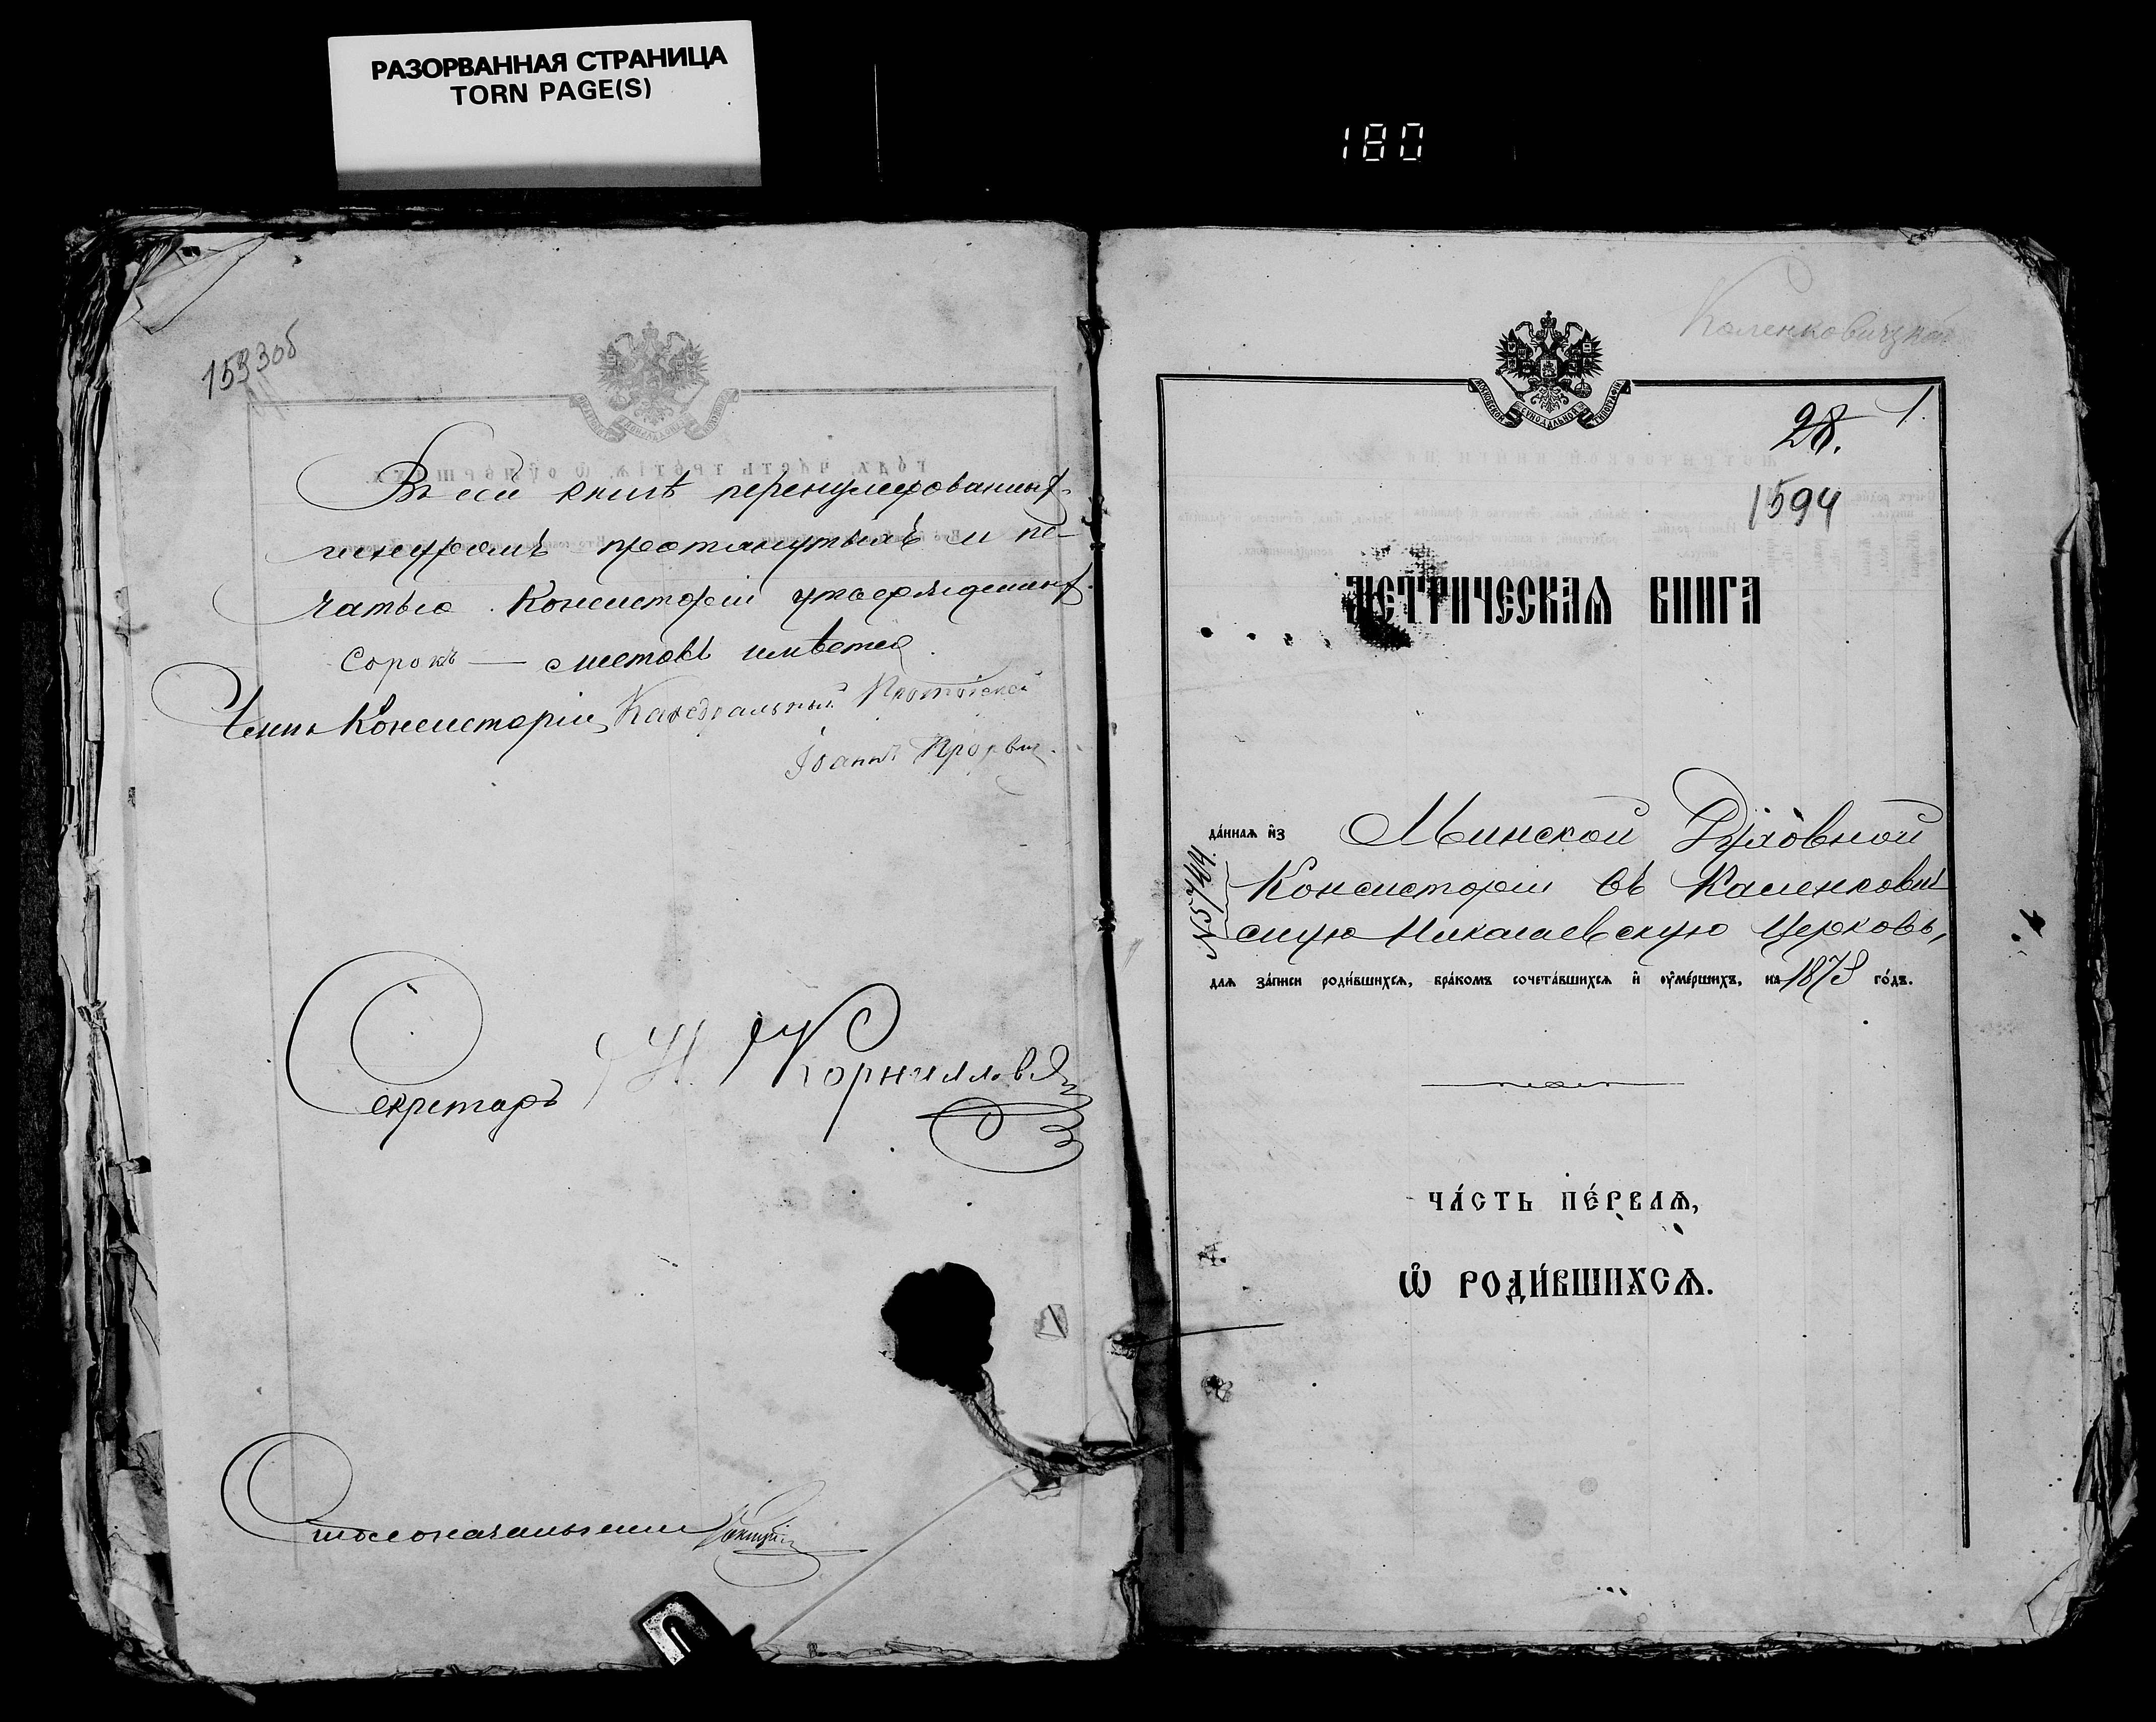 РАЗОРВАННАЯ СТРАНИЦА
TORN PAGE(S)
180
Въ сей книгѣ перенумерованныхъ
шнуромъ протянутыхъ и пе-
чатью Консисторіи утвержденныхъ
Сорокъ — листовъ имѣется.
Членъ Консисторіи, Каѳедральный Протоіерей
Іоаннъ
Секретарь Н. Корниловъ
Столоначальникъ
28. 1.
1594
МЕТРИЧЕСКАѦ КНИГА
да́ннаѧ и҆з Минской Духовной
№ 5744.
Консисторіи въ Каленкович
скую Николаевскую Церковь,
длѧ за́писи роди́вшихсѧ, бра́комъ сочета́вшихсѧ и҆ оу҆ме́ршихъ, на 1873 го́дъ.
ЧА́СТЬ ПЕ́РВАѦ,
Ѡ҆ РОДИ́ВШИХСѦ.